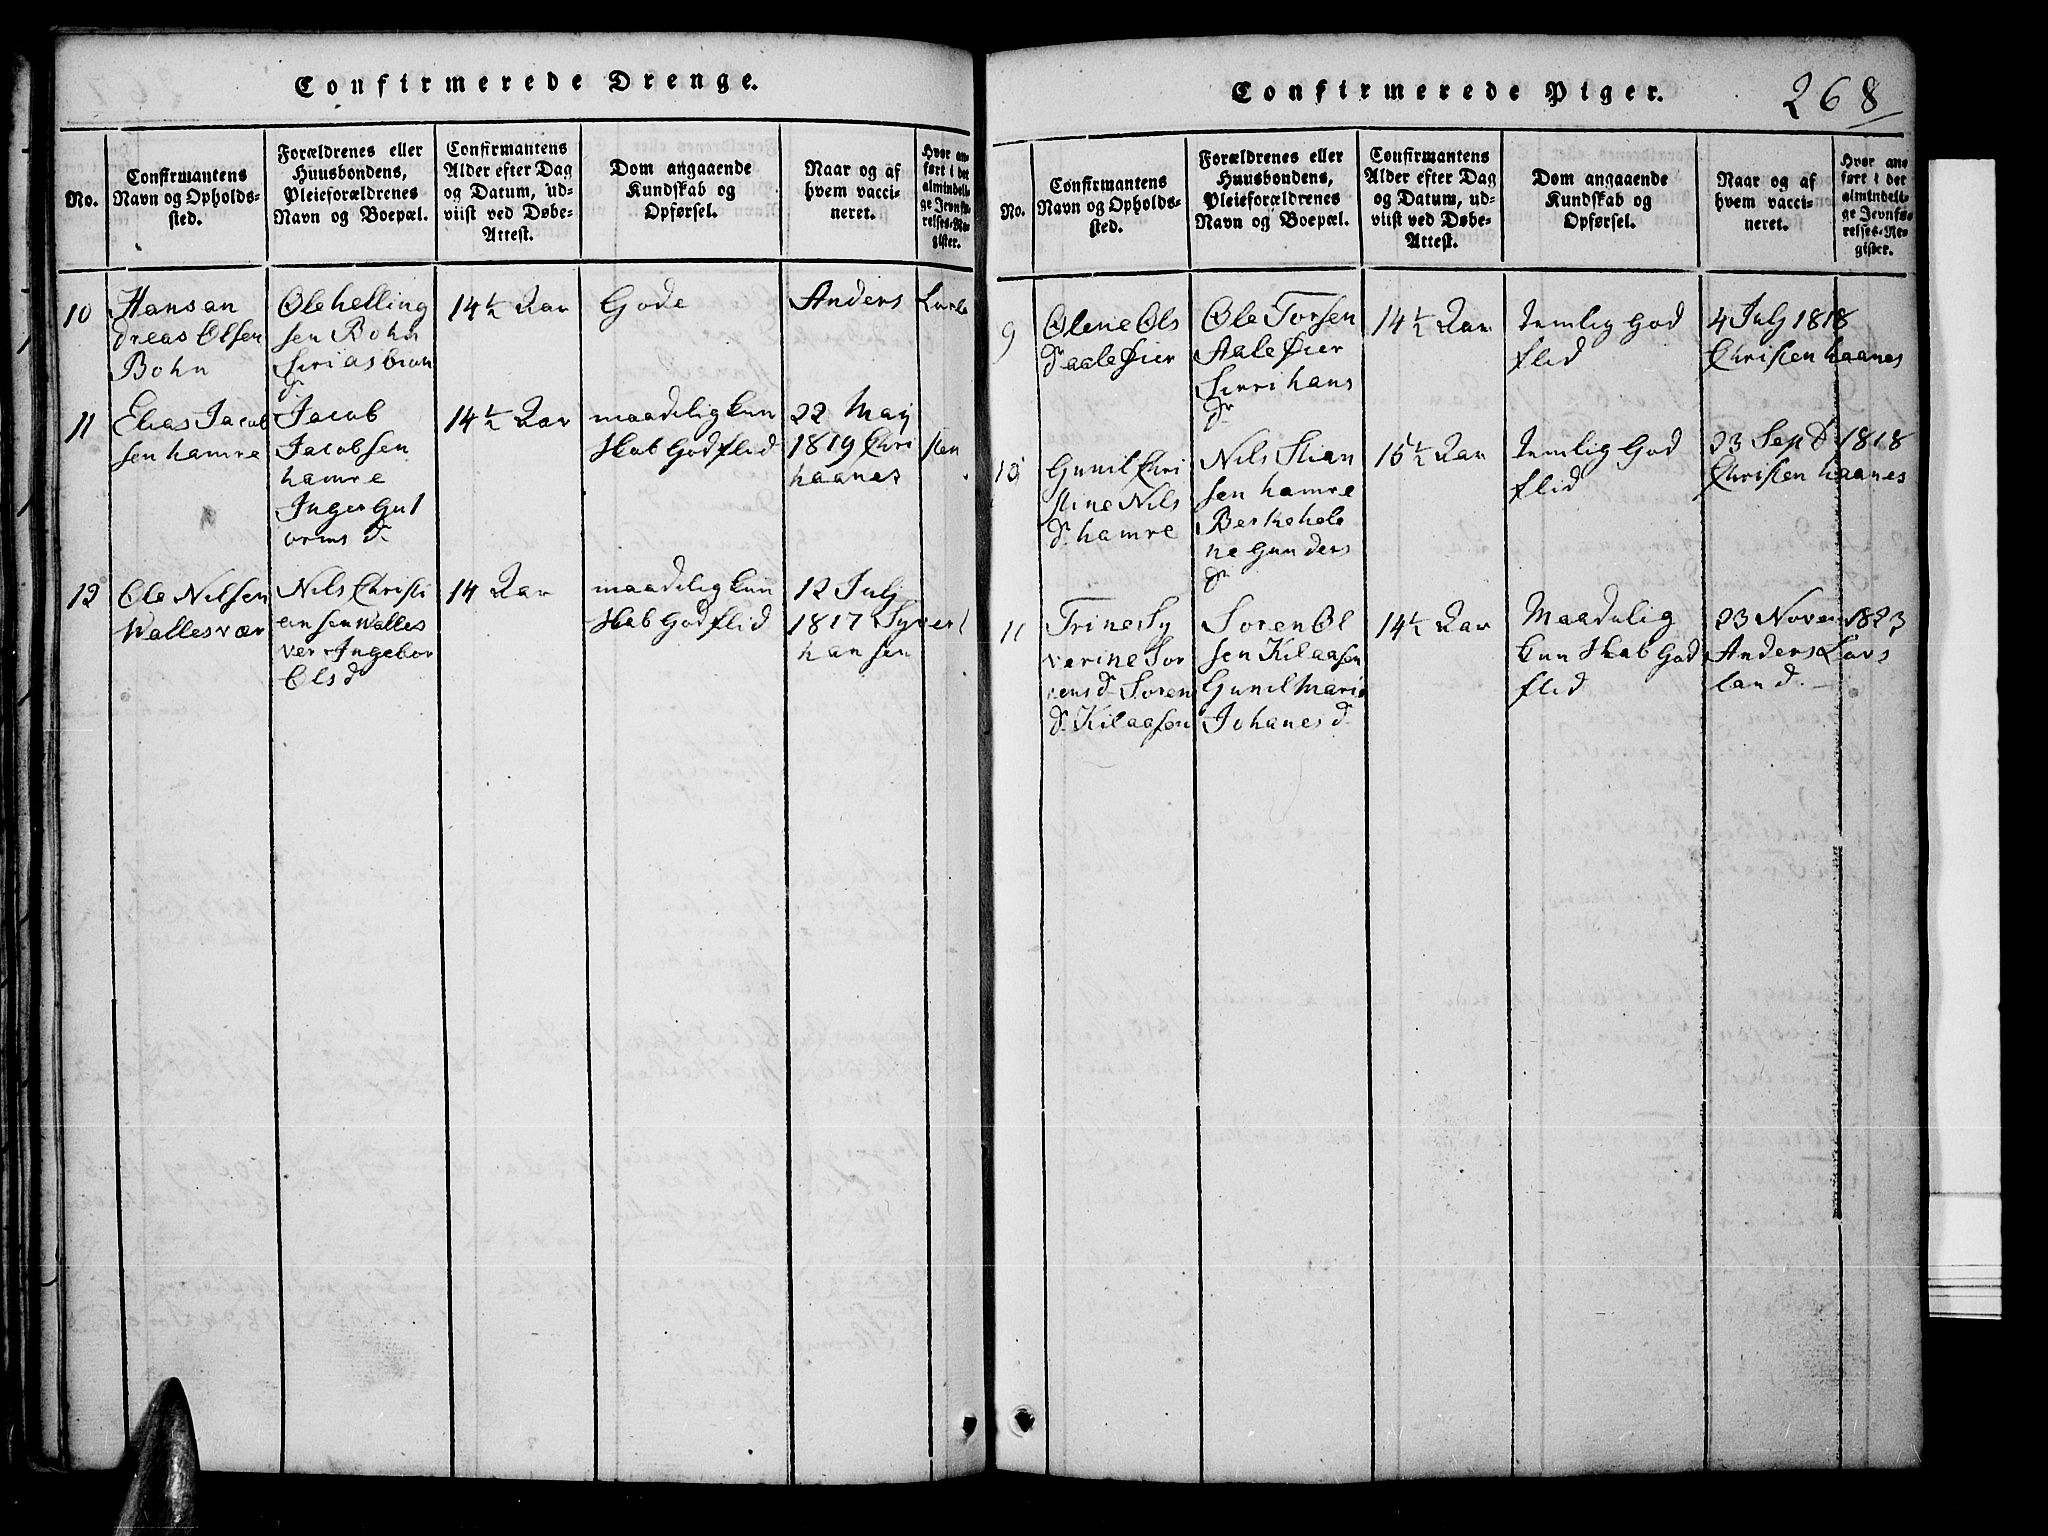 Confirmerede Drenge.
No.
Confirmantens
Navn og Opholds-
sted.
Forældrenes eller
Huusbondens,
Pleieforældrenes
Navn og Boepæl.
Confirmantens
Alder efter Dag
og Datum, ud-
viist ved Døbe-
Attest.
Dom angaaende
Kundskab og
Opførsel.
Naar og af
hvem vacci-
neret.
Hvor an-
ført i det
almindeli-
ge Jevnfø-
relses-Re-
gister.
10
Hans an
dreas Olsen
Bohn
Ole helling
sen Bohn
14½ Aar
Gode
Anders
11
Elias Jacob
sen hamre
Jacob
Jacobsen
hamre
Inger Gut
orms d.
14½ Aar
maadelig kun
skab God flid
22 May
1819 Chri sten
haanes
12
Ole Nilsen
Wallesvær
Nils Christi
ansen Walles
vær Ingebor
Ols d
14 Aar
maadelig kun
skab God flid
12 July
1817 Syvert
hansen
Confirmerede Piger.
268
No.
Confirmantens
Navn og Opholds-
sted.
Forældrenes eller
Huusbondens,
Pleieforældrenes
Navn og Boepæl.
Confirmantens
Alder efter Dag
og Datum, ud-
viist ved Døbe-
Attest.
Dom angaaende
Kundskab og
Opførsel.
Naar og af
hvem vacci-
neret.
Hvor an-
ført i det
almindeli-
ge Jevnfø-
relses-Re-
gister.
9
Olene Ols
dr aaleøier
Ole Torsen
Aaleøier
Sirri hans
dr
14½ Aar
temlig God
flid
4 July 1818
Christen haanes
10
Gunil Chri
stine Nils
d. hamre
Nils Stian
sen hamre
Berthe hele
ne Gunders
dr
15½ Aar
temlig God
flid
23 Sept 1818
Christen haanes
11
Trine Sy
verine Sor
ens d. Soren
d. Kilaasen
Soren Ol
sen Kilaasen
Gunil Marie
Johanes d.
14½ Aar
Maadelig
kun skab God
flid
23 Novem 1823
Anders Lavs
land.